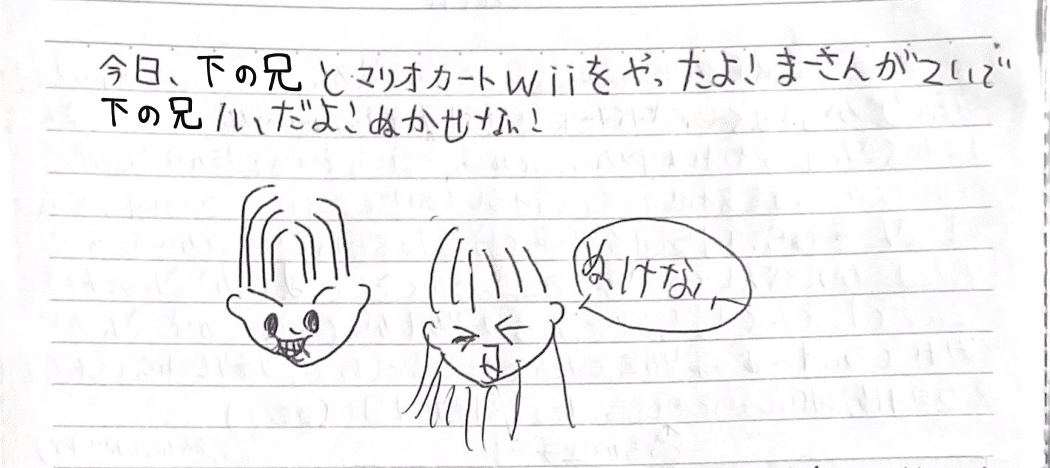 今日、下の兄とマリオカートwiiをやったよ！まーさんがつよいで
下の兄 だよ！ぬかせない！
ぬけない